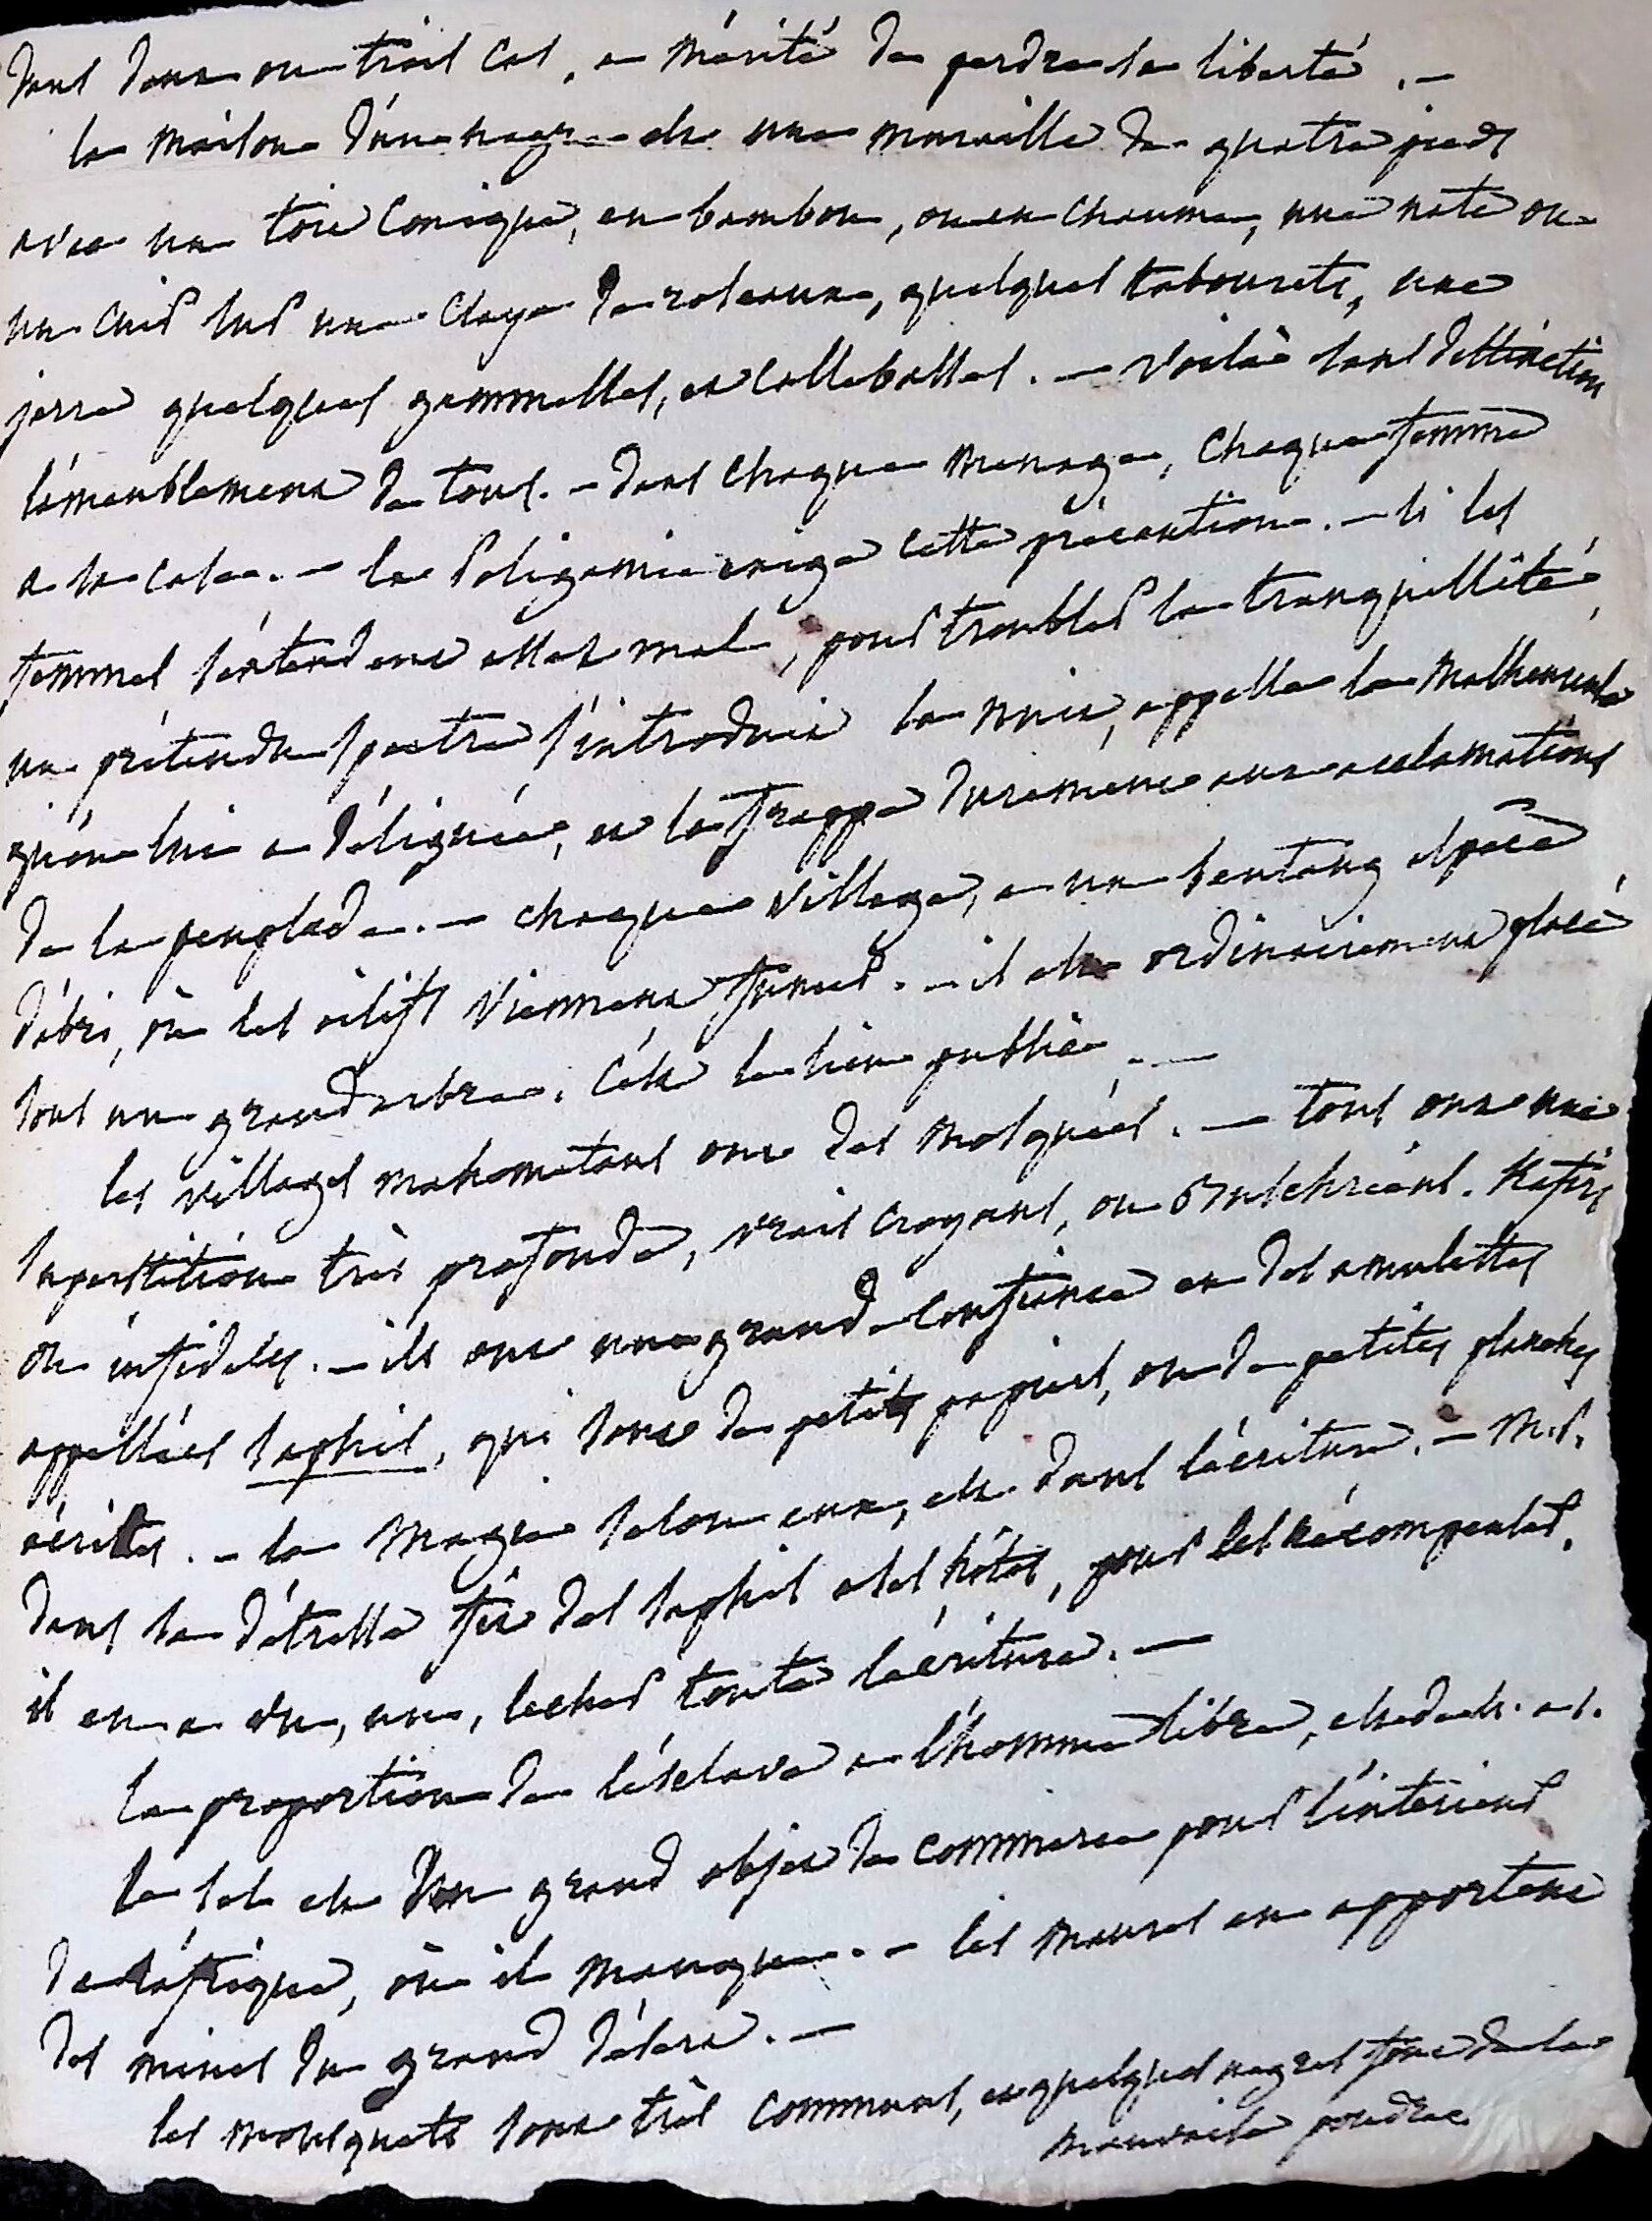 dans deux ou trois cas, a mérité de perdre la liberté. —
la maison d'un negre est une muraille de quatre pieds
avec un toit conique, en bambou, ou en chaume, une nate ou
un cuir sur un claye de roseaux, quelques tabourets, une
jarre quelques gammelles, et callebasses. — voila sans distinction
l'ameublement de tous. — dans chaque menage, chaque femme
a sa case. — la Poligamie exige cette précaution. — si les
femmes s'entendent assez mal, pour troubler la tranquillité,
un prétendu spectre s'introduit la nuit, appelle la malheureuse
qu'on lui a désignée, et la frappe durement aux acclamations
de la peuplade. — chaque village, a un bentang espèce
d'abri, où les oisifs viennent fumer. — il est ordinairement placé
sous un grand arbre. c'est le lieu public. —
les villages mahometans ont des mosquées. — tous ont une
superstition très profonde, vrais croyants, ou Bushréens. Kafirs
ou infideles. — ils ont une grande confiance en des amulettes
appellées saphis, qui sont de petits papiers, ou de petites planches
écrites. — la magie selon eux, est dans l'écriture. — M.P.
dans sa détresse fit des saphis a ses hôtes, pour les récompenser.
il en a vu, un, lecher toute l'écriture. —
la proportion de l'esclave a l'homme libre, est de
le sel est un grand objet de commerce pour l'intérieur
de l'afrique, où il manque. — les maures en apportent
des mines du grand désert. —
les mousquets sont très communs, et quelques negres font de la
mauvaise poudre